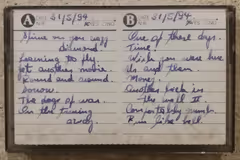 A 31/5/94
Shine on you crazy
diamond.
Learning to fly
yet another movie.
Round and around.
Sorrow.
The dogs of war.
On the turning
away
B 31/5/94.
One of these days.
Time.
Wish you were here
Us and them
Money.
Another brick in
the wall II
Comfortably numb.
Run like hell